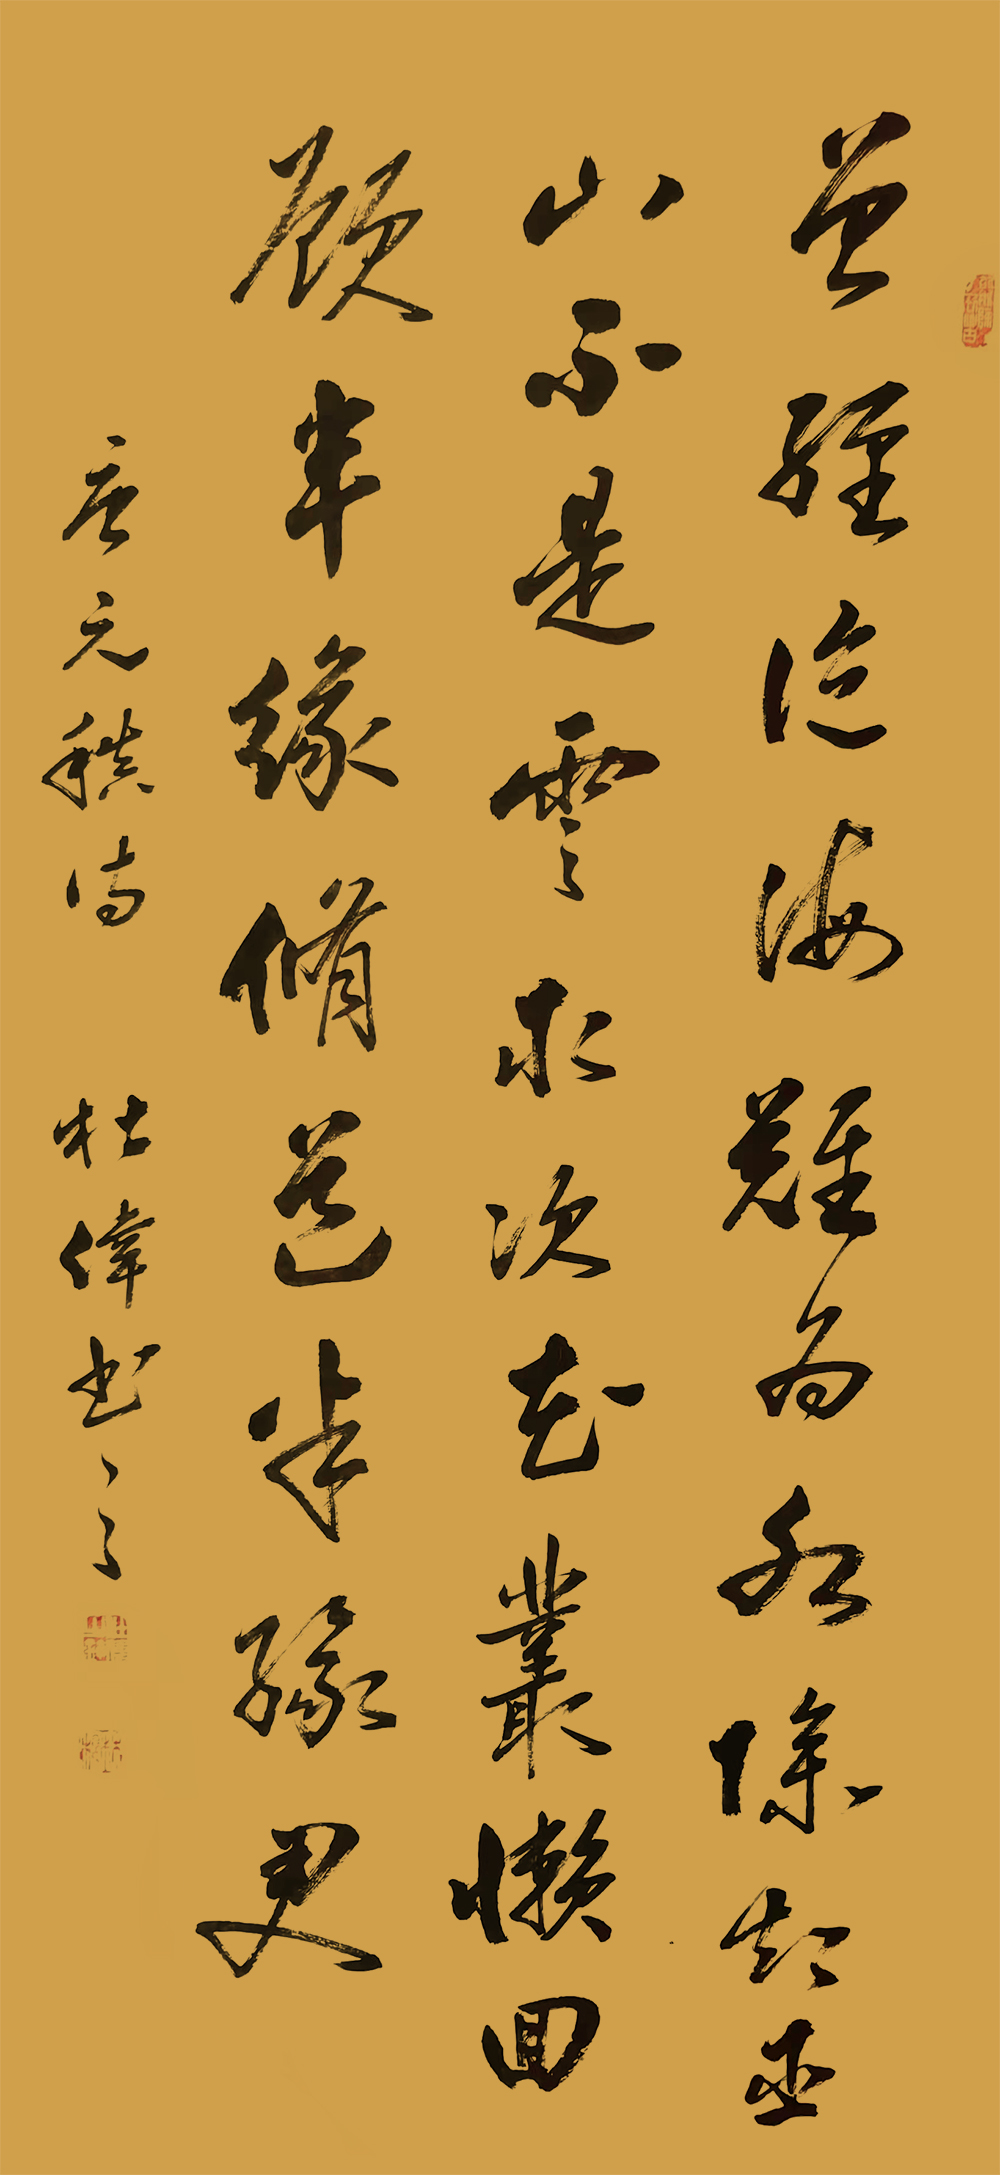 曾經滄海難為水除却巫
山不是雲取次花叢懶回
顧半緣脩道半緣君
唐元稹詩 杜偉书之